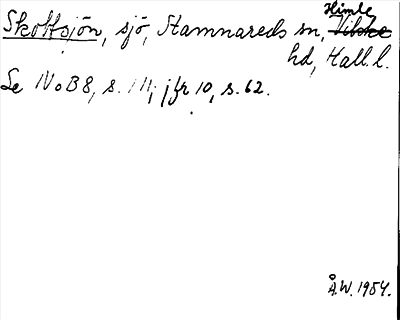 Himle
Skottsjön, sjö, Stamnareds sn, Viske
hd, Hall. l.
Se NoB 8, s. 111; jfr 10, s. 62.
Å.W. 1954.